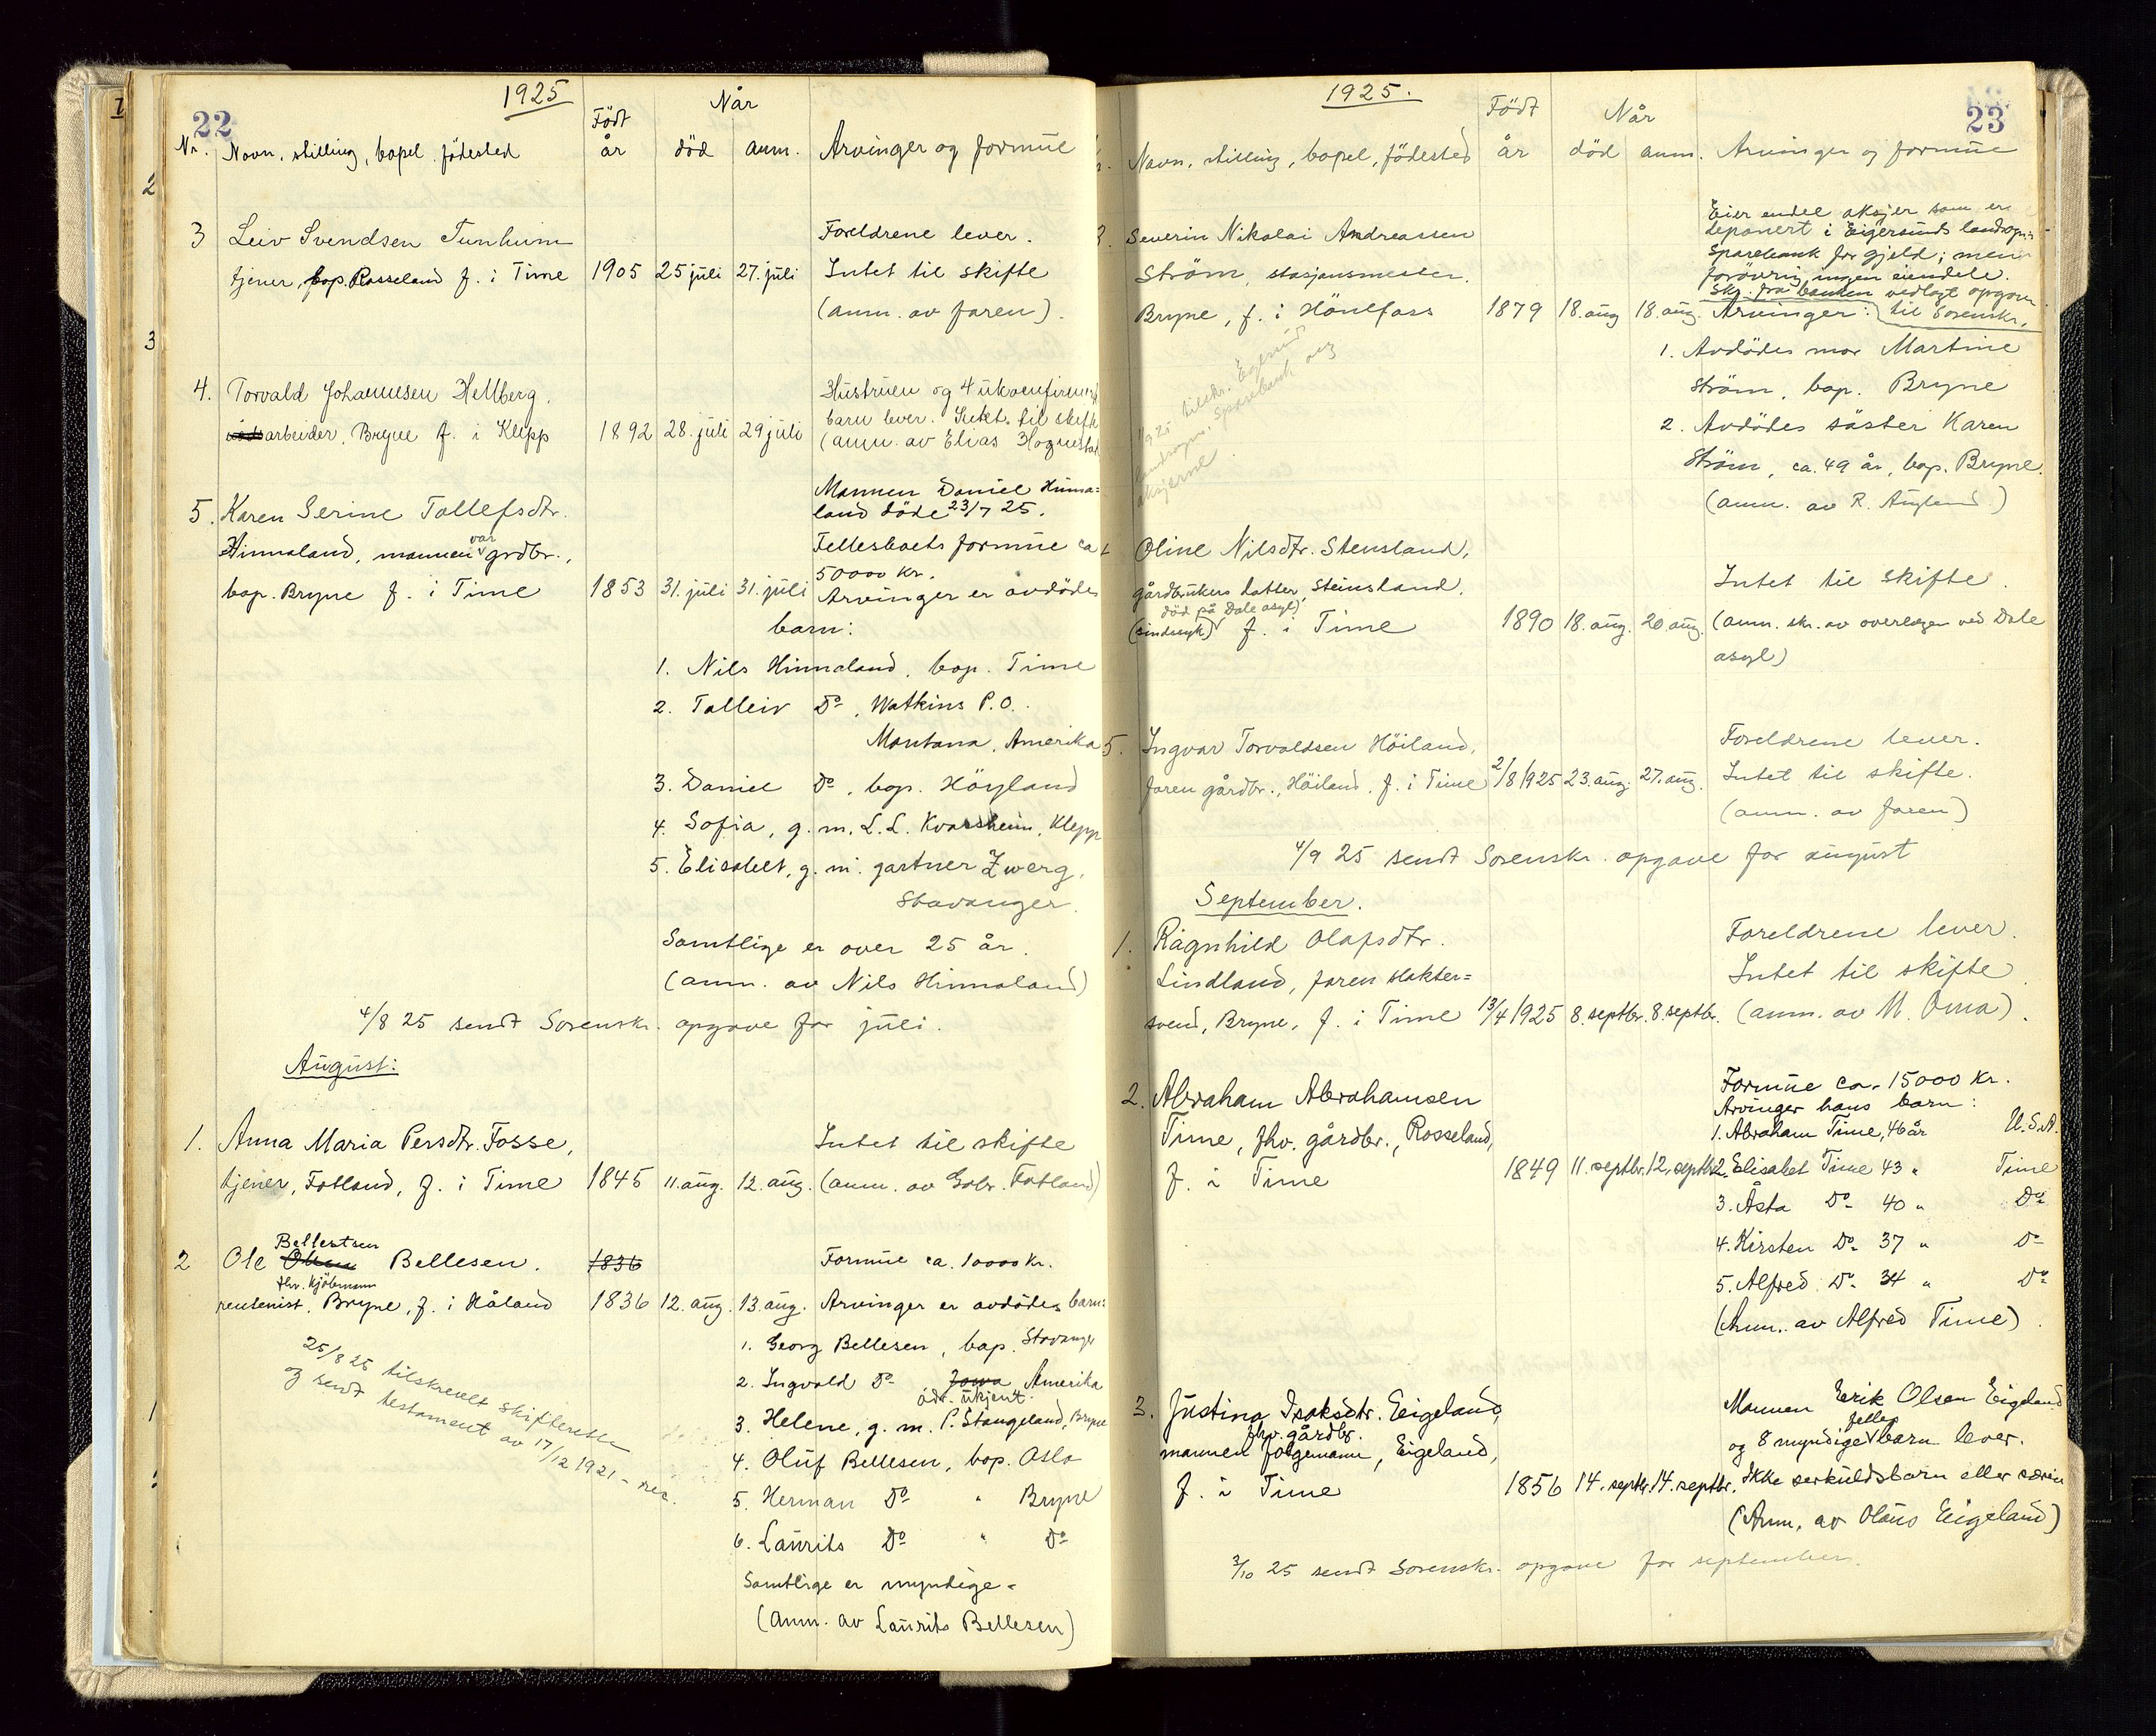 22
1925
Nr. Navn, stilling, bopel, födested
Födt år
Når
död
anm.
Arvinger og formue
3 Leiv Svendsen Tunheim
tjener, bop. Rosseland f. i Time 1905 25 juli 27. juli
Foreldrene lever.
Intet til skifte
(anm. av faren).
4. Torvald Johannesen Hellberg,
arbeider, Bryne f. i Klepp 1892 28. juli 29 juli
Hustruen og 4 ukonfirm.
barn lever. Intet til skifte
(anm. av Elias Hognestad
5. Karen Serine Tollefsdtr.
Hinnaland, mannen var grdbr.,
bop. Bryne f. i Time 1853 31. juli 31. juli
Mannen Daniel Hinna=
land döde 23/7 25.
Fellesboets formue ca
50000 kr.
Arvinger er avdödes
barn:
1. Nils Hinnaland, bop. Time
2. Tolleiv Do, Watkins P.O.
Montana, Amerika
3. Daniel Do, bop. Höyland
4. Sofia, g. m. L. L. Kvassheim, Klepp
5. Elisabet, g. m. gartner Zwerg,
Stavanger.
Samtlige er over 25 år.
(anm. av Nils Hinnaland)
4/8 25 sendt Sorenskr. opgave for juli.
August:
1. Anna Maria Persdtr. Fosse,
tjener, Fotland, f. i Time 1845 11. aug. 12. aug.
Intet til skifte
(anm. av Gabr. Fotland)
2 Ole Olsen Bellestsen Bellesen. 1836
fhv. kjöbmann
rentenist, Bryne, f. i Håland 1836 12. aug. 13. aug.
Formue ca. 10000 kr.
Arvinger er avdödes barn:
1. Georg Bellesen, bop. Stavanger
2. Ingvald Do Iowa Amerika
adr. ukjent.
3. Helene, g. m. P. Stangeland, Bryne
4. Oluf Bellesen, bop. Oslo
5. Herman Do " Bryne
6. Laurits Do " Do
Samtlige er myndige.
(anm. av Laurits Bellesen)
25/8 25 tilskrevet skifteretten
og sendt testament av 17/12 1921 - rec.
23
1925.
Navn, stilling, bopel, födested
Födt år
Når
död
anm.
Arvinger og formue
Severin Nikolai Andreassen
Ström, stasjonsmester.
Bryne, f. i Hönefoss 1879 18. aug 18. aug.
Eier endel aksjer som er
deponert i Eigersunds landsogns
Sparebank for gjeld; men
forövrig ingen eiendele.
Skr. fra banken vedlagt opgaven
til Sorenskr.
Arvinger:
1. Avdödes mor Martine
Ström, bop. Bryne
2. Avdödes söster Karen
Ström, ca. 49 år, bop. Bryne.
(anm. av R. Augland)
Oline Nilsdtr. Stensland,
gårdbrukers datter, Steinsland.
död på Dale asyl
(sindssyk) f. i Time 1890 18. aug. 20 aug.
Intet til skifte.
(anm. skr. av overlegen ved Dale
asyl)
5. Ingvar Torvaldsen Höiland,
faren gårdbr., Höiland, f. i Time 2/8 1925 23. aug. 27. aug.
Foreldrene lever.
Intet til skifte.
(anm. av faren)
4/9 25 sendt Sorenskr. opgave for august
September.
1. Ragnhild Olafsdtr.
Lindland, faren slakter=
svend, Bryne, f. i Time 13/4 1925 8. septbr. 8. septbr.
Foreldrene lever.
Intet til skifte
(anm. av M. Oma).
2. Abraham Abrahamsen
Time, fhv. gårdbr., Rosseland,
f. i Time 1849 11. septbr. 12. septbr.
Formue ca. 15000 kr.
Arvinger hans barn:
1. Abraham Time, 46 år U.S.A.
2. Elisabet Time 43 " Time
3. Åsta Do 40 " Do
4. Kirsten Do 37 " Do
5. Alfred Do 34 " Do
(Anm. av Alfred Time).
3. Justina Isaksdtr. Eigeland,
fhv. gårdbr.
mannen folgemann, Eigeland,
f. i Time 1856 14. septbr. 14. septbr.
Mannen Eerik Olsen Eigeland
og 8 myndige felles barn lever.
Ikke serkuldsbarn eller særeie
(Anm. av Olaus Eigeland)
3/10 25 sendt Sorenskr. opgave for september.